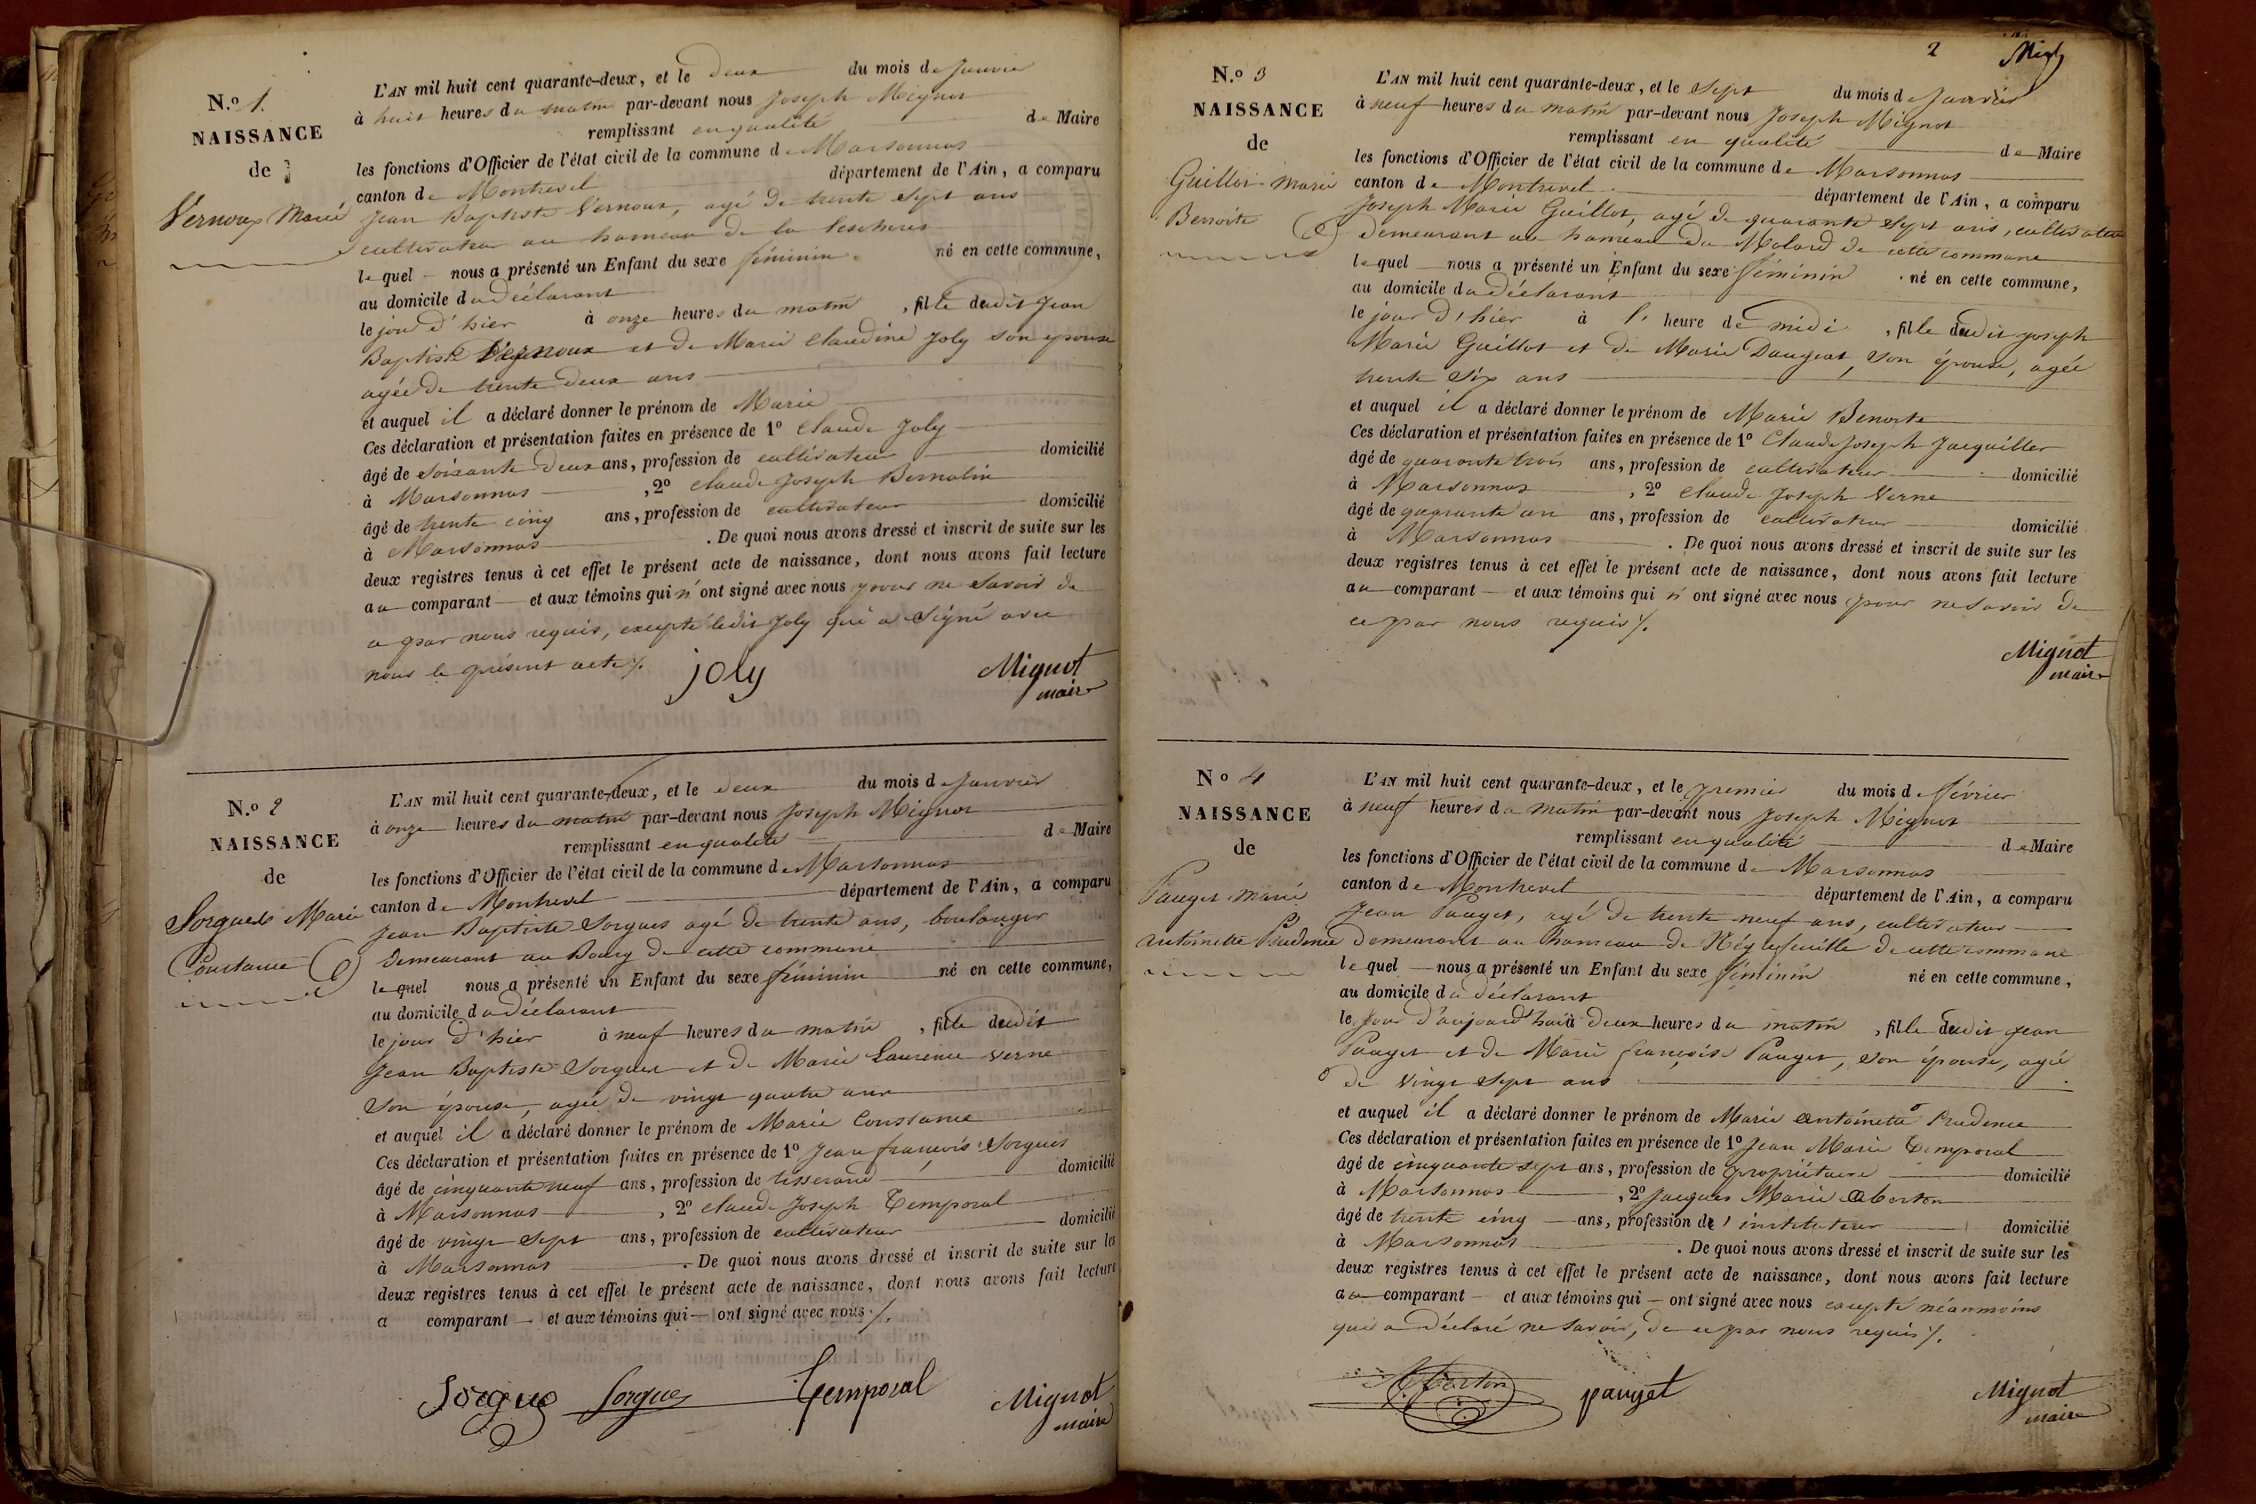 N.o 1.
NAISSANCE
de
Vernoux Marie
L'AN mil huit cent quarante-deux, et le deux du mois de Janvier
à huit heures du matin par-devant nous Joseph Mignot
remplissant en qualité de Maire
les fonctions d'Officier de l'état civil de la commune de Marsonnas
canton de Montrevel département de l'Ain, a comparu
Jean Baptiste Vernoux, agé de trente sept ans
cultivateur au hameau de la
lequel nous a présenté un Enfant du sexe féminin né en cette commune,
au domicile du déclarant
le jour d'hier à onze heures du matin, fille dudit Jean
Baptiste Vernoux et de Marie Claudine Joly son épouse
agée de trente deux ans
et auquel il a déclaré donner le prénom de Marie
Ces déclaration et présentation faites en présence de 1o Claude Joly
âgé de soixante deux ans, profession de cultivateur domicilié
à Marsonnas, 2o Claude Joseph Bernalin
âgé de trente cinq ans, profession de cultivateur domicilié
à Marsonnas. De quoi nous avons dressé et inscrit de suite sur les
deux registres tenus à cet effet le présent acte de naissance, dont nous avons fait lecture
au comparant et aux témoins qui n'ont signé avec nous pour ne savoir de
ce par nous requis, excepté ledit Joly qui a signé avec
nous le présent acte ./.
joly Mignot
maire
N.o 2
NAISSANCE
de
Sorgues Marie
Constance
L'AN mil huit cent quarante-deux, et le deux du mois de Janvier
à onze heures du matin par-devant nous Joseph Mignot
remplissant en qualité de Maire
les fonctions d'Officier de l'état civil de la commune de Marsonnas
canton de Montrevel département de l'Ain, a comparu
Jean Baptiste Sorgues agé de trente ans, boulanger
demeurant au Bourg de cette commune
lequel nous a présenté un Enfant du sexe féminin né en cette commune,
au domicile du déclarant
le jour d'hier à neuf heures du matin, fille dudit
Jean Baptiste Sorgues et de Marie Laurence Verne
son épouse, agée de vingt quatre ans
et auquel il a déclaré donner le prénom de Marie Constance
Ces déclaration et présentation faites en présence de 1o Jean françois Sorgues
âgé de cinquante neuf ans, profession de tisserand domicilié
à Marsonnas, 2o Claude Joseph Temporal
âgé de vingt sept ans, profession de cultivateur domicilié
à Marsonnas. De quoi nous avons dressé et inscrit de suite sur les
deux registres tenus à cet effet le présent acte de naissance, dont nous avons fait lecture
a comparant et aux témoins qui ont signé avec nous ./.
Sorgue Sorgues Temporal Mignot
maire
2
N.o 3
NAISSANCE
de
Guillot Marie
Benoite
L'AN mil huit cent quarante-deux, et le sept du mois de Janvier
à neuf heures du matin par-devant nous Joseph Mignot
remplissant en qualité de Maire
les fonctions d'Officier de l'état civil de la commune de Marsonnas
canton de Montrevel département de l'Ain, a comparu
Joseph Marie Guillot, agé de quarante sept ans, cultivateur
demeurant au hameau du Molard de cette commune
lequel nous a présenté un Enfant du sexe féminin né en cette commune,
au domicile du déclarant
le jour d'hier à l'heure de midi, fille dudit joseph
Marie Guillot et de Marie Daugeat, son épouse, agée
trente six ans
et auquel il a déclaré donner le prénom de Marie Benoite
Ces déclaration et présentation faites en présence de 1o Claude Joseph Jacquiller
âgé de quarante trois ans, profession de cultivateur domicilié
à Marsonnas, 2o Claude Joseph Verne
âgé de quarante un ans, profession de cultivateur domicilié
à Marsonnas. De quoi nous avons dressé et inscrit de suite sur les
deux registres tenus à cet effet le présent acte de naissance, dont nous avons fait lecture
au comparant et aux témoins qui n'ont signé avec nous pour ne savoir de
ce par nous requis ./.
Mignot
maire
No 4
NAISSANCE
de
Pauget Marie
antoinette Prudence
L'AN mil huit cent quarante-deux, et le premier du mois de février
à neuf heures du matin par-devant nous Joseph Mignot
remplissant en qualité de Maire
les fonctions d'Officier de l'état civil de la commune de Marsonnas
canton de Montrevel département de l'Ain, a comparu
Jean Pauget, agé de trente neuf ans, cultivateur
demeurant au hameau de Néglefeuille de cette commune
lequel nous a présenté un Enfant du sexe féminin né en cette commune,
au domicile du déclarant
le jour d'aujourd'hui à deux heures du matin, fille dudit Jean
Pauget et de Marie françoise Pauget, son épouse, agée
de vingt sept ans
et auquel il a déclaré donner le prénom de Marie antoinette Prudence
Ces déclaration et présentation faites en présence de 1o Jean Marie Temporal
âgé de cinquante sept ans, profession de propriétaire domicilié
à Marsonnas, 2o Jacques Marie Aberton
âgé de trente cinq ans, profession de l'instituteur domicilié
à Marsonnas. De quoi nous avons dressé et inscrit de suite sur les
deux registres tenus à cet effet le présent acte de naissance, dont nous avons fait lecture
au comparant et aux témoins qui ont signé avec nous excepté néanmoins
qui a déclaré ne savoir, de ce par nous requis ./.
Aberton pauget Mignot
maire